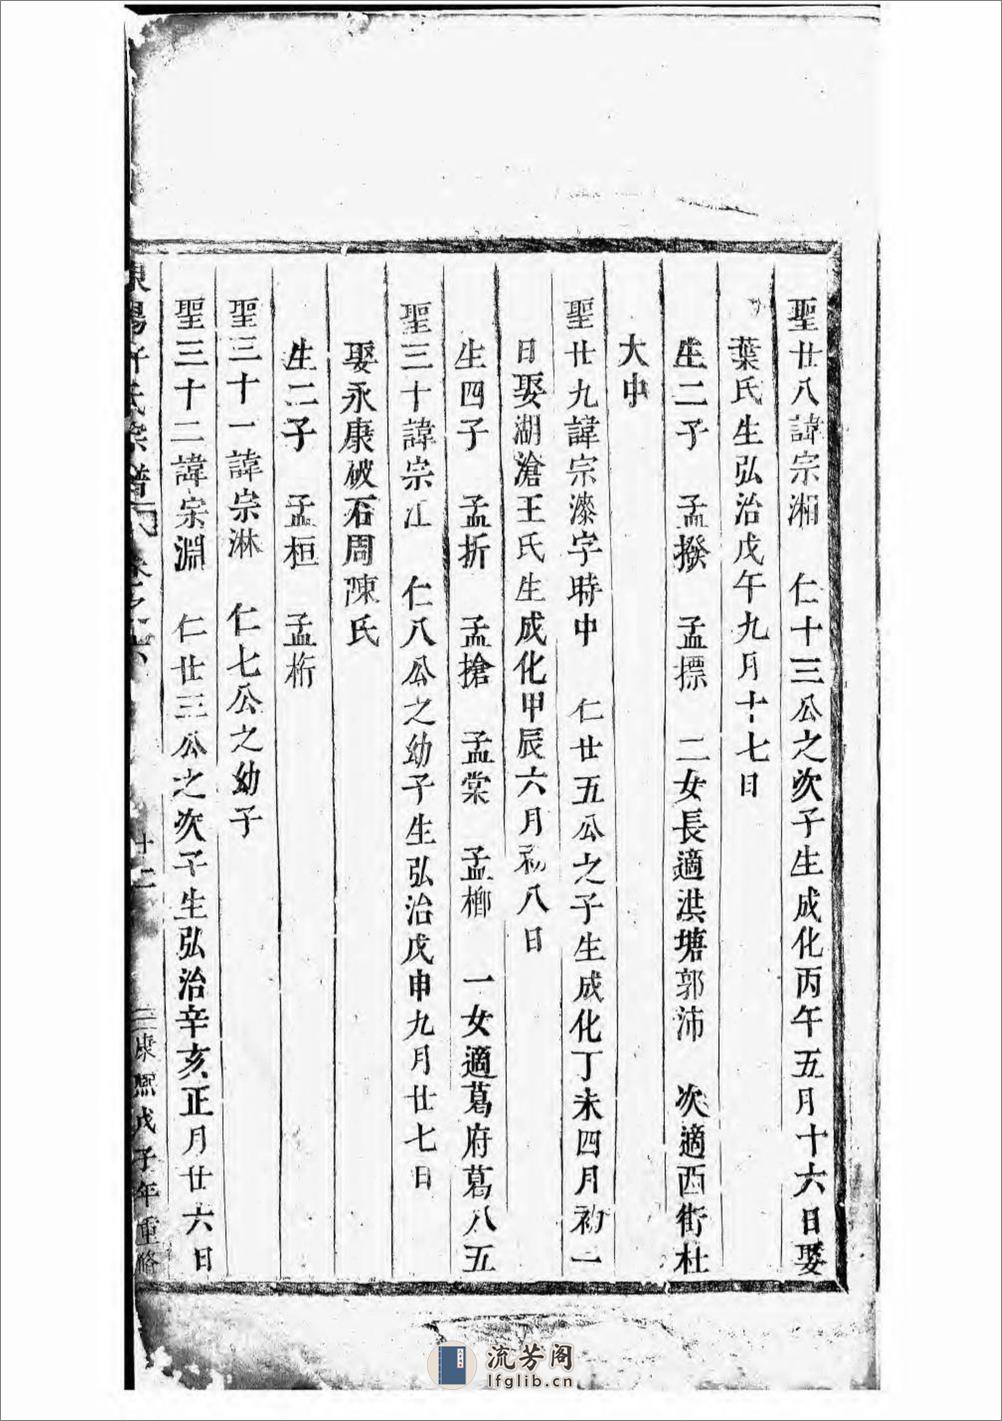 聖廿八諱宗湘　仁十三公之次子生成化丙午五月十六日娶
葉氏生弘治戊午九月十七日
生二子　孟撥　孟摽　二女長適洪塘郭沛　次適西街杜
大中
聖廿九諱宗漆字時中　仁廿五公之子生成化丁未四月初一
日娶湖滄王氏生成化甲辰六月初八日
生四子　孟折　孟搶　孟棠　孟榔　一女適葛府葛八五
聖三十諱宗江　仁八公之幼子生弘治戊申九月廿七日
娶永康破石周陳氏
生二子　孟桓　孟桁
聖三十一諱宗淋　仁七公之幼子
聖三十二諱宗淵　仁廿三公之次子生弘治辛亥正月廿六日
東陽許氏宗譜　卷之六　十二　康熙戊子年重脩
流芳阁
lfglib.cn